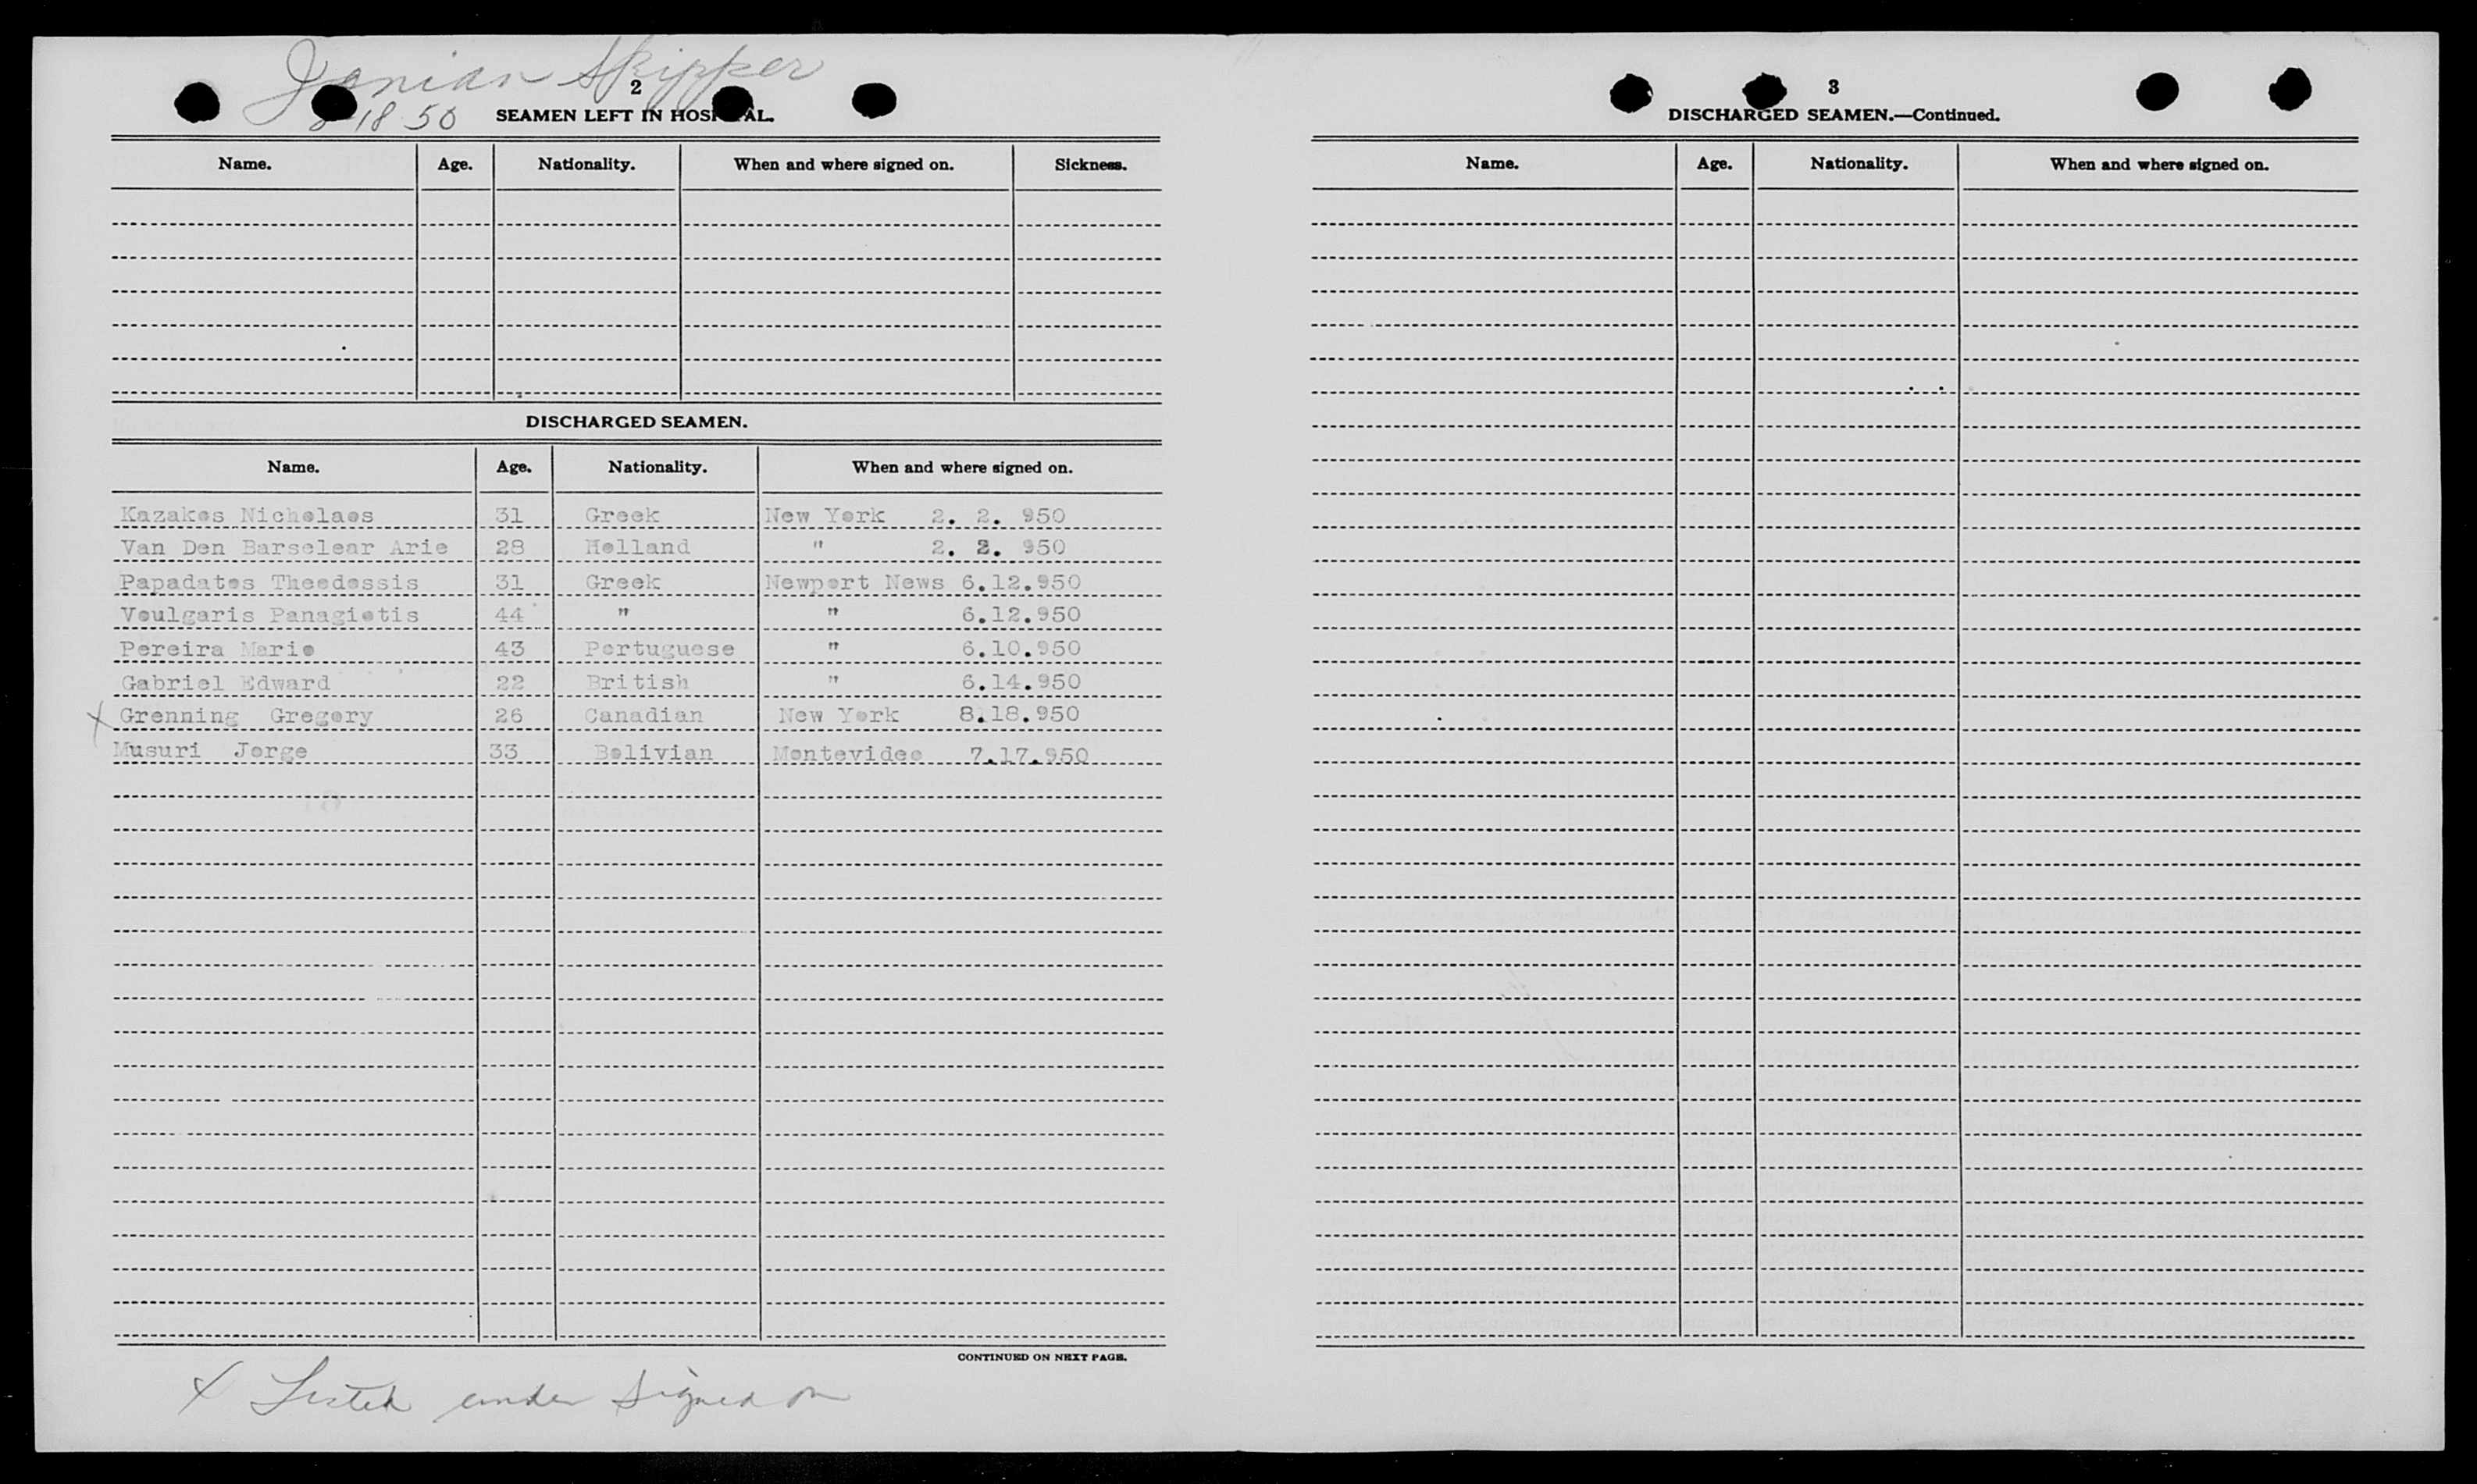 Ionian Skipper
2
8 18 50 SEAMEN LEFT IN HOSPITAL.
Name. Age. Nationality. When and where signed on. Sickness.
DISCHARGED SEAMEN.
Name. Age. Nationality. When and where signed on.
Kazakos Nicholaos 31 Greek New York 2. 2. 950
Van Den Barselear Arie 28 Holland " 2. 2. 950
Papadatos Theodossis 31 Greek Newport News 6.12.950
Voulgaris Panagiotis 44 " " 6.12.950
Pereira Mario 43 Portuguese " 6.10.950
Gabriel Edward 22 British " 6.14.950
x Grenning Gregory 26 Canadian New York 8.18.950
Musuri Jorge 33 Bolivian Montevideo 7.17.950
CONTINUED ON NEXT PAGE.
x Listed under signed on
3
DISCHARGED SEAMEN.—Continued.
Name. Age. Nationality. When and where signed on.